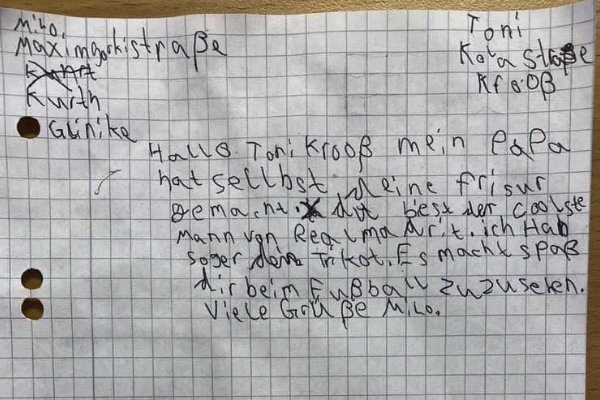 Milo.
Maximgorkistraße
Kurth
Glinike
Toni
Kola Straße
Krooß
Hallo. Toni Krooß mein Papa
hat sellbst deine frisur
gemacht. du best der coolste
Mann von Realmadrit. ich Hab
soger dein Trikot. Es macht spaß
dir beim Fußball zuzusehen.
Viele Grüße Milo.